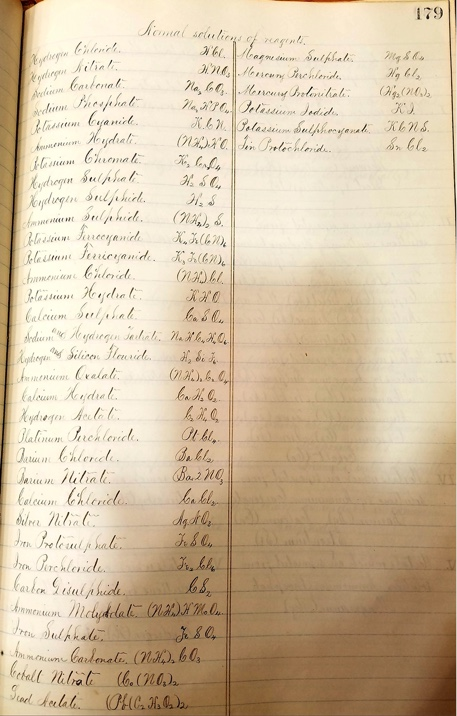 179
Normal solutions of reagents.
Hydrogen Chloride. H Cl.
Hydrogen Nitrate. H N O₃
Sodium Carbonate. Na₂ C O₃.
Sodium Phosphate. Na₂ H P O₄.
Potassium Cyanide. K. C N.
Ammonium Hydrate. (N H₄) H O.
Potassium Chromate. K₂ Cr O₄
Hydrogen Sulphate. H₂ S O₄
Hydrogen Sulphide. H₂ S
Ammonium Sulphide. (N H₄)₂ S.
Potassium Ferrocyanide K₄ Fe (C N)₆
Potassium Ferrocyanide. K₃ Fe (C N)₆
Ammonium Chloride. (N H₄) Cl.
Potassium Hydrate. K H O
Calcium Sulphate. Ca S O₄.
Sodium and Hydrogen Tartrate. Na H C₄ H₄ O₆
Hydrogen and Silicon Flouride. H₂ Si F₆.
Ammonium Oxalate. (N H₄)₂ C₂ O₄
Calcium Hydrate. Ca H₂ O₂.
Hydrogen Acetate. C₂ H₄ O₂
Platinum Perchloride. Pt Cl₄.
Barium Chloride. Ba Cl₂
Barium Nitrate. Ba. 2 N O₃
Calcium Chloride. Ca Cl₂
Silver Nitrate. Ag N O₃
Iron Protosulphate. Fe S O₄
Iron Perchloride. Fe₂ Cl₆
Carbon Disulphide. C S₂
Ammonium Molybdate. (N H₄) H Mo O₄
Iron Sulphate. Fe S O₄
Ammonium Carbonate. (N H₄)₂ C O₃
Cobalt Nitrate (Co (N O₃)₂
Lead Acetate. (Pb (C₂ H₃ O₂)₂
Magnesium Sulphate Mg S O₄
Mercury Perchloride Hg Cl₂
Mercury Protonitrate (Hg₂ (N O₃)₂
Potassium Iodide. K I.
Potassium Sulphocyanate K C N S.
Tin Protochloride. Sn Cl₂